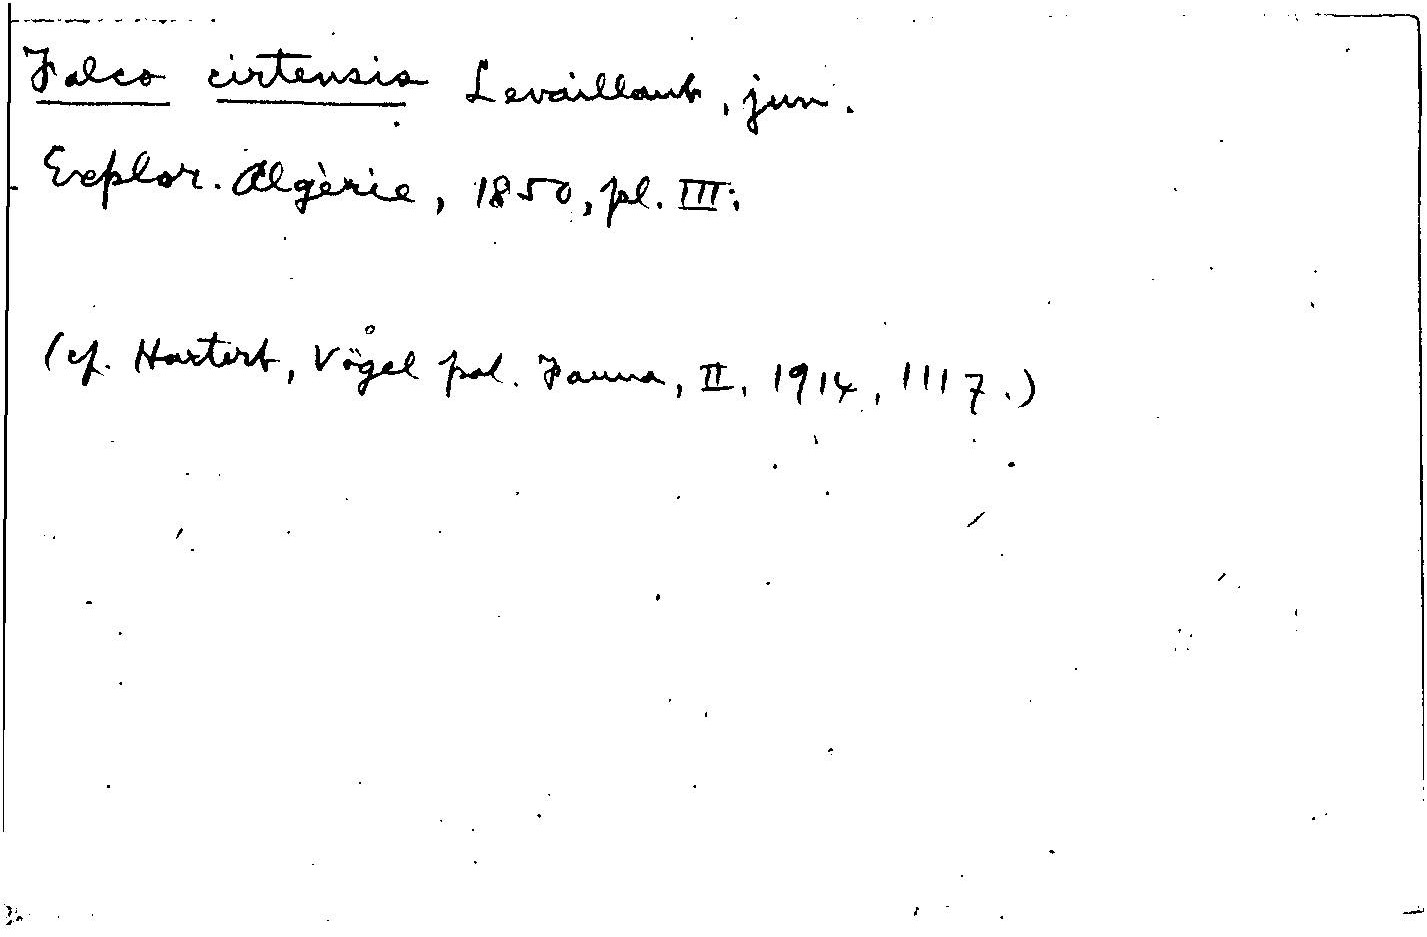 Falco cirtensis Levaillant, jun.
Explor. Algèrie, 1850, pl. III;
(cf. Hartert, Vögel pal. Fauna, II, 1914, 1117.)